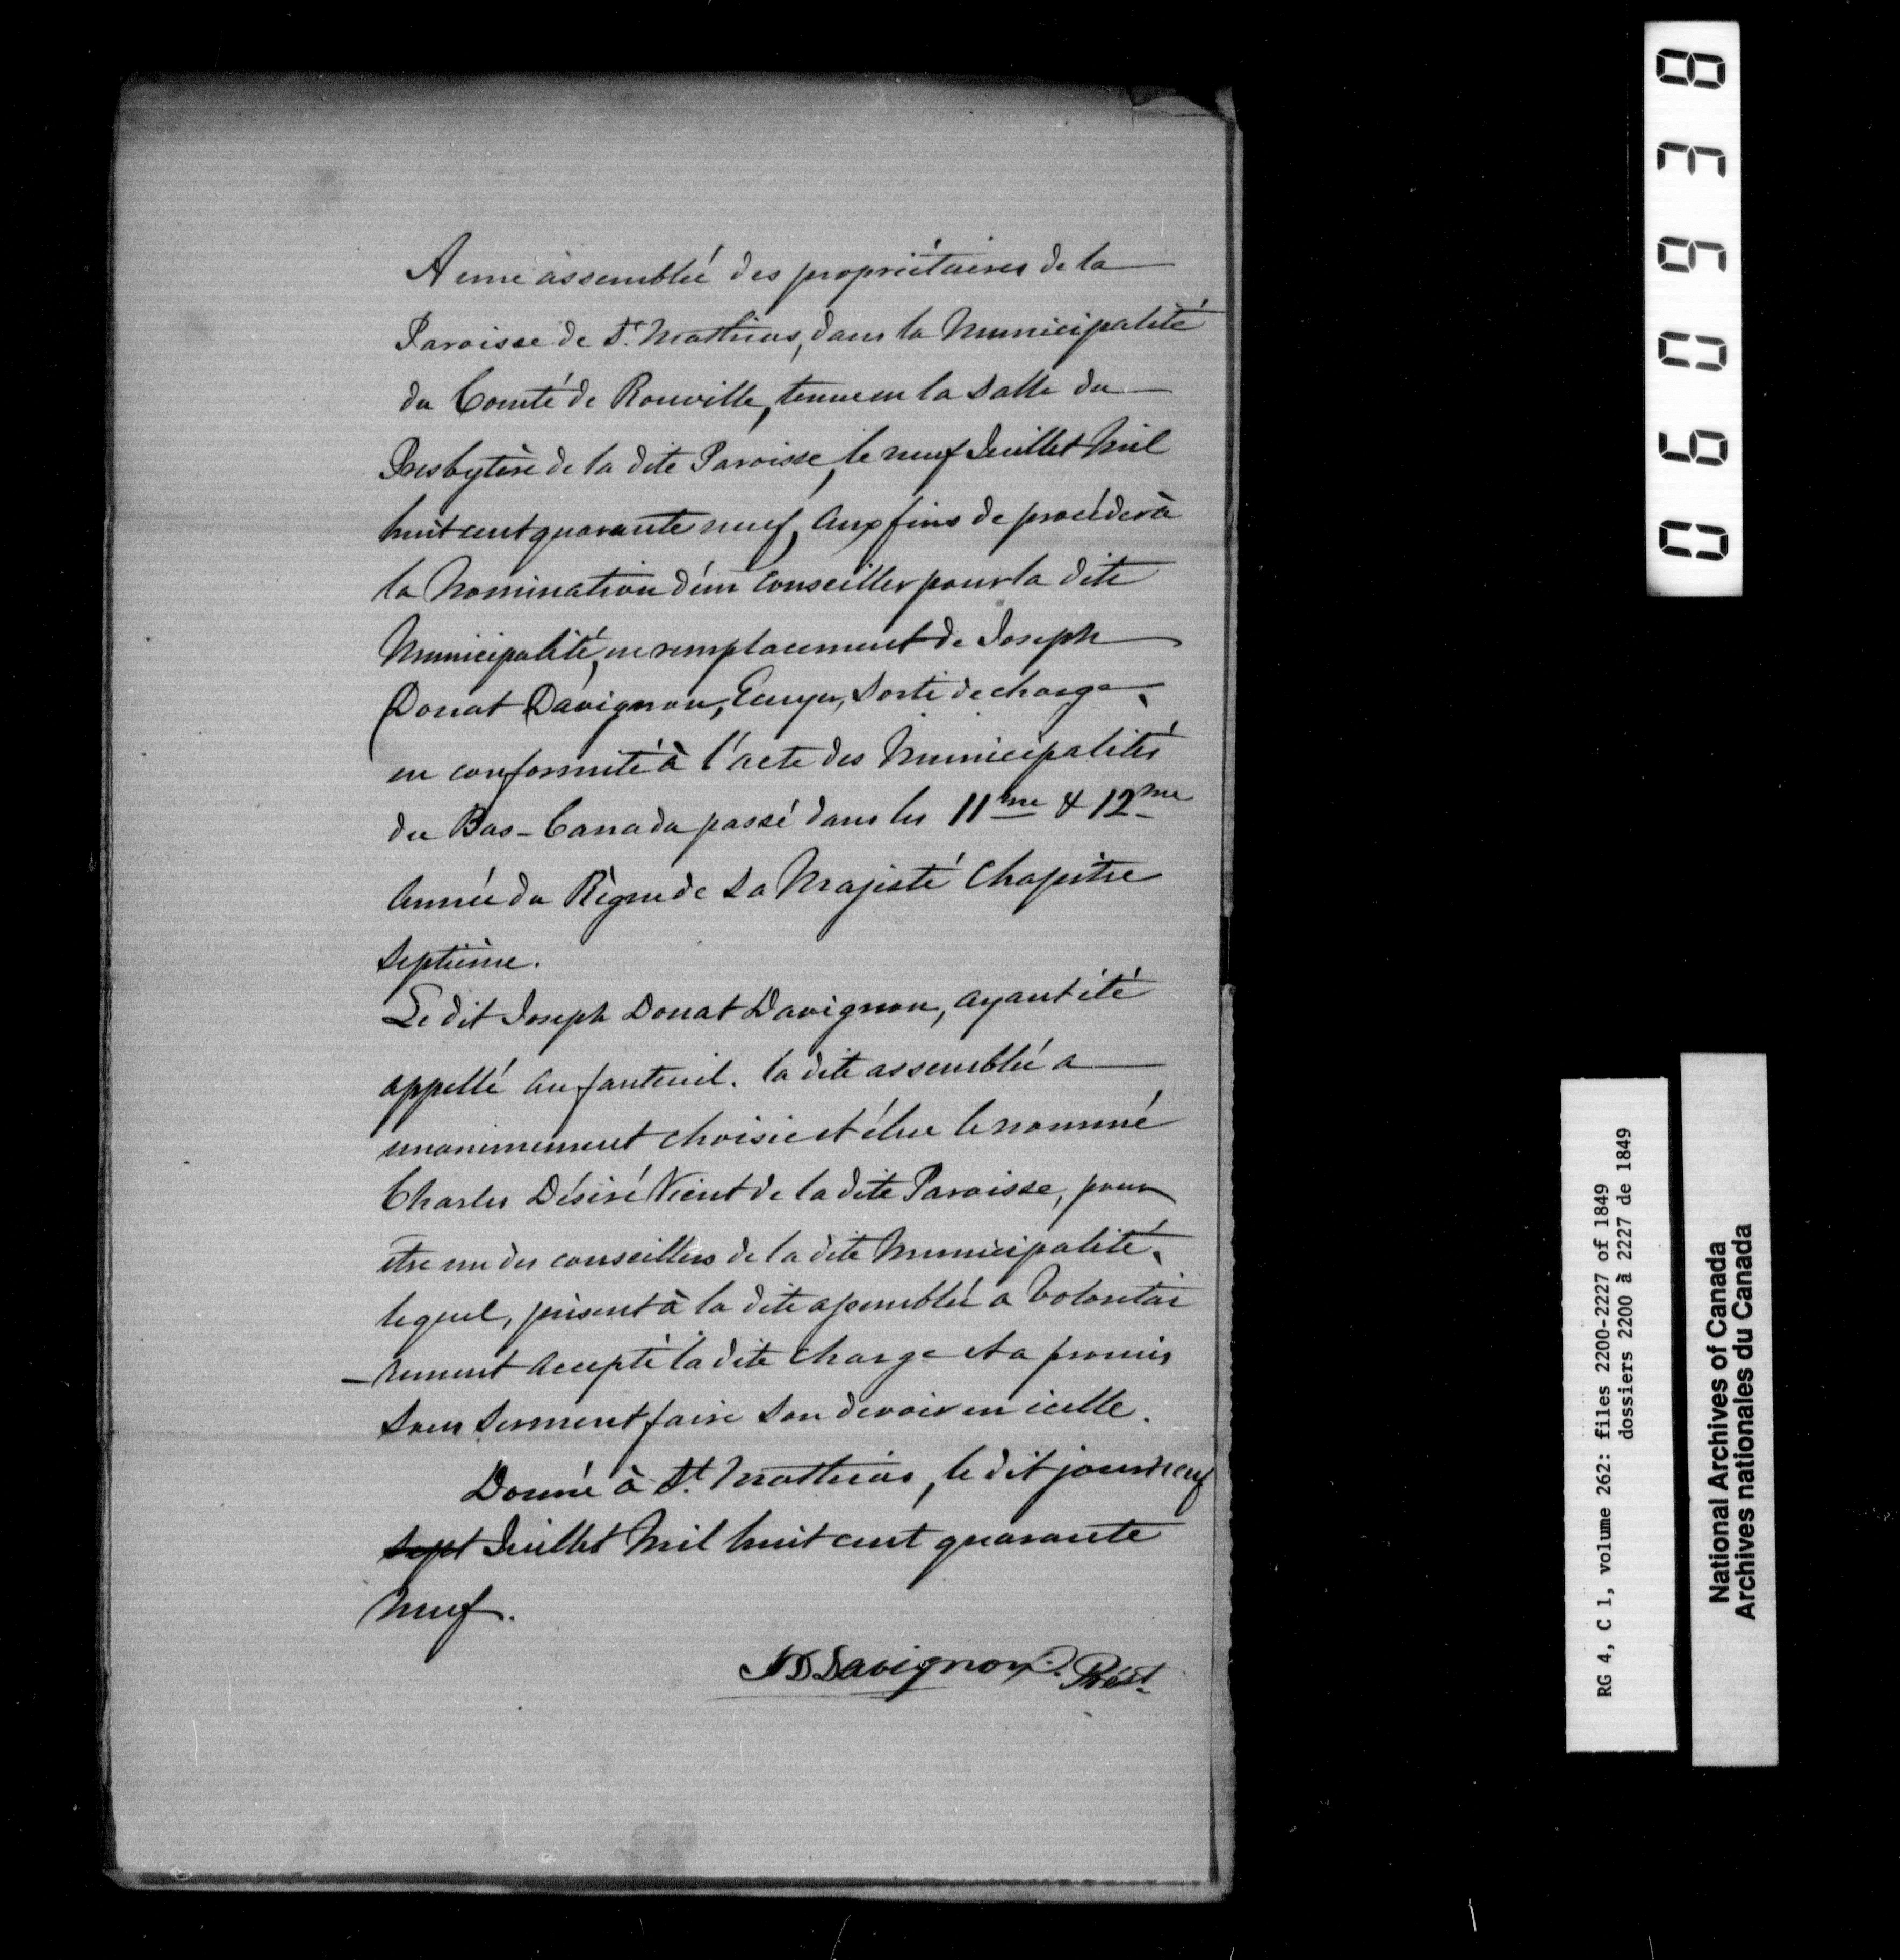 A une assemblée des propriétaires de la
Paroisse de St. Mathias, dans la Municipalité
du Comté de Rouville, tenue en la Salle du
Presbytère de la dite Paroisse, le neuf Juillet Mil
huit cent quarante neuf, aux fins de procéder à
la Nomination d'un Conseiller pour la dite
Municipalité, en remplacement de Joseph
Donat Davignon, Ecuyer, Sorti de charge,
en conformité à l'acte des Municipalités
du Bas-Canada passé dans les 11me & 12me
Année du Règne de Sa Majesté Chapitre
Septième.
Le dit Joseph Donat Davignon, ayant été
appellé au fauteuil. la dite assemblée a
unanimement choisie et élue le nommé
Charles Désiré de la dite Paroisse, pour
être un des conseillers de la dite Municipalité,
lequel, présent à la dite assemblée a Volontai
-rement accepté la dite charge et a promis
sous serment faire son devoir en icelle.
Donné à St. Mathias, le dit jour neuf
sept Juillet Mil huit cent quarante
Neuf.
JD Davignon. Prést.
060938
RG 4, C 1, volume 262: files 2200-2227 of 1849
dossiers 2200 à 2227 de 1849
National Archives of Canada
Archives nationales du Canada